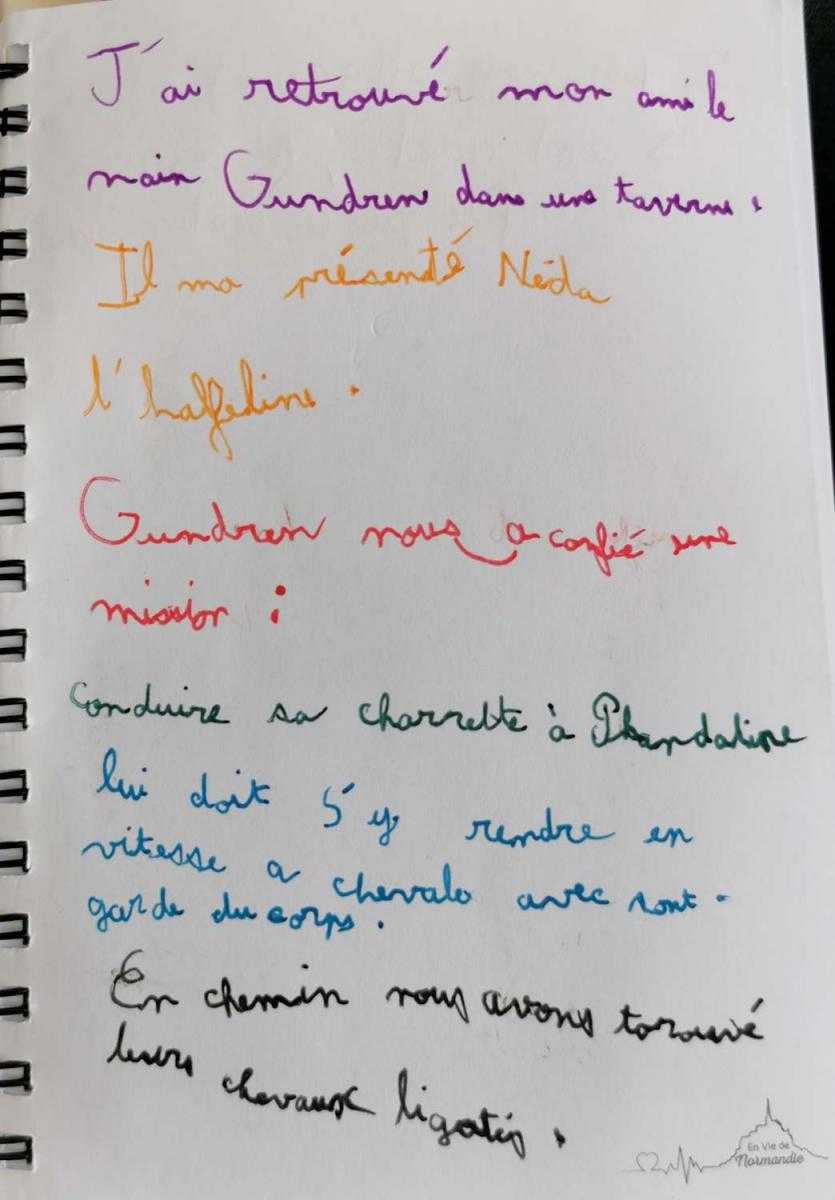 J'ai retrouvé mon ami le
nain Gundren dans une taverne.
Il ma présenté Néda
l'halfeline.
Gundren nous a confié une
mission :
conduire sa charrette à Phandaline
lui doit s'y rendre en
vitesse a chevale avec sont
garde du corps.
En chemin nous avons torouvé
leurs chevaux ligotés.
En Vie de
Normandie